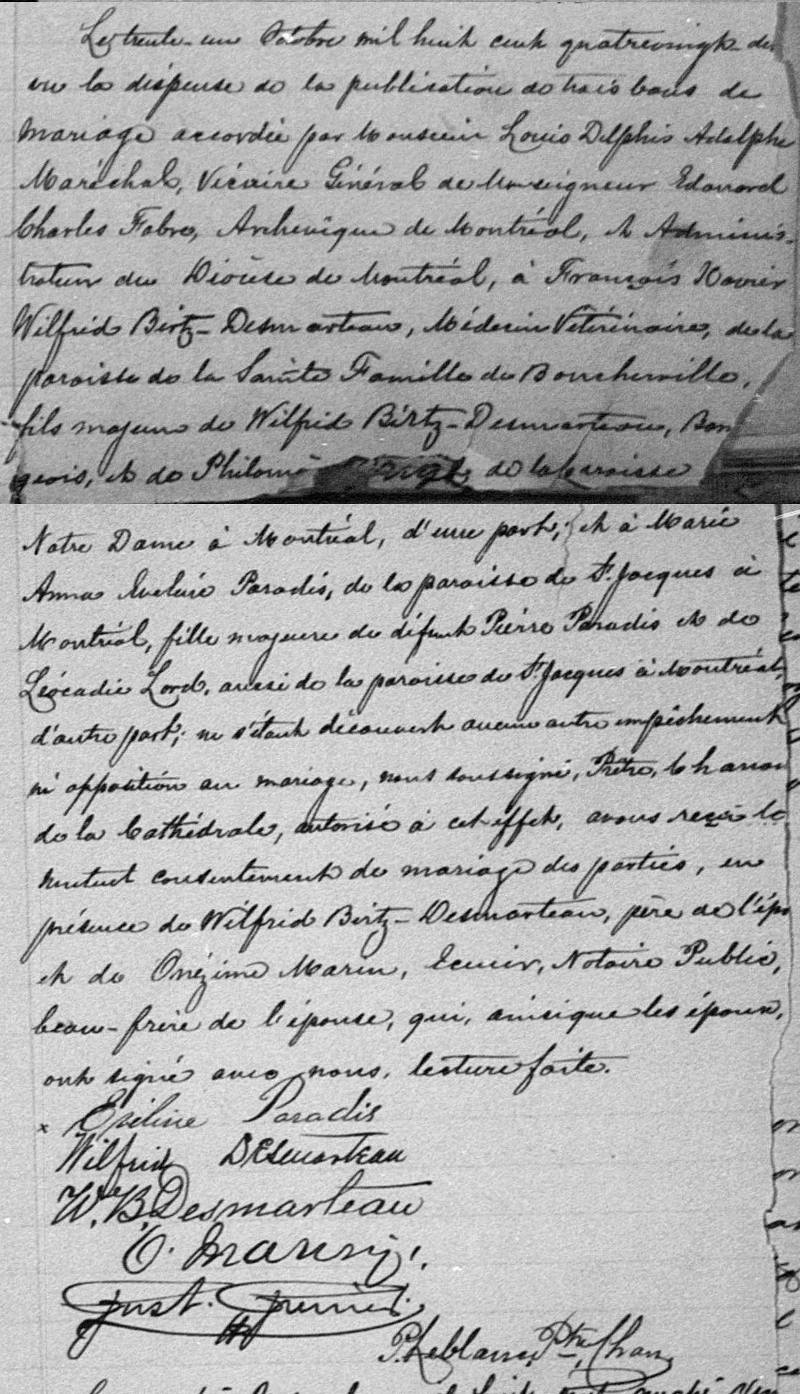 Le trente-un Octobre mil huit cent quatrevingt-
vu la dispense de la publication de trois bans de
mariage accordée par Monsieur Louis Delphis Adolphe
Maréchal, Vicaire Général de Monseigneur Edouard
Charles Fabre, Archevêque de Montréal, et Adminis-
trateur du Diocèse de Montréal, à François Xavier
Wilfrid Birtz-Desmarteau, Médecin Vétérinaire, de la
paroisse de la Sainte Famille de Boucherville,
fils majeur de Wilfrid Birtz-Desmarteau, Bour
geois, et de de la paroisse
Notre Dame à Montréal, d'une part; et à Marie
Anna Eveline Paradis, de la paroisse de St. Jacques à
Montréal, fille majeure de défunt Pierre Paradis et de
Léocadie Lord, aussi de la paroisse de St. Jacques à Montréal,
d'autre part; ne s'étant découvert aucun autre empêchement
ni opposition au mariage, nous soussigné, Prêtre, Chanoi
de la Cathédrale, autorisé à cet effet, avons reçu le
mutuel consentement de mariage des parties, en
présence de Wilfrid Birtz-Desmarteau, père de l'épo
et de Onézime Marin, Ecuier, Notaire Public,
beau-frère de l'épouse, qui, ainsi que les époux,
ont signé avec nous, lecture faite.
x Eveline Paradis
Wilfrid Desmarteau
W. B. Desmarteau
O. Marin
P. Leblanc, Ptre, Chan